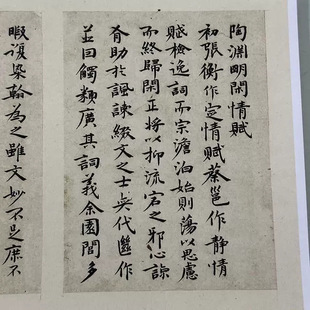 陶渊明閑情賦
初張衡作定情賦蔡邕作静情
賦檢逸詞而宗澹泊始則蕩以思慮
而終歸閑正將以抑流宕之邪心諒
有助於諷諫綴文之士奕代繼作
並因觸類廣其詞義余園閭多
暇復染翰為之雖文妙不足庶不